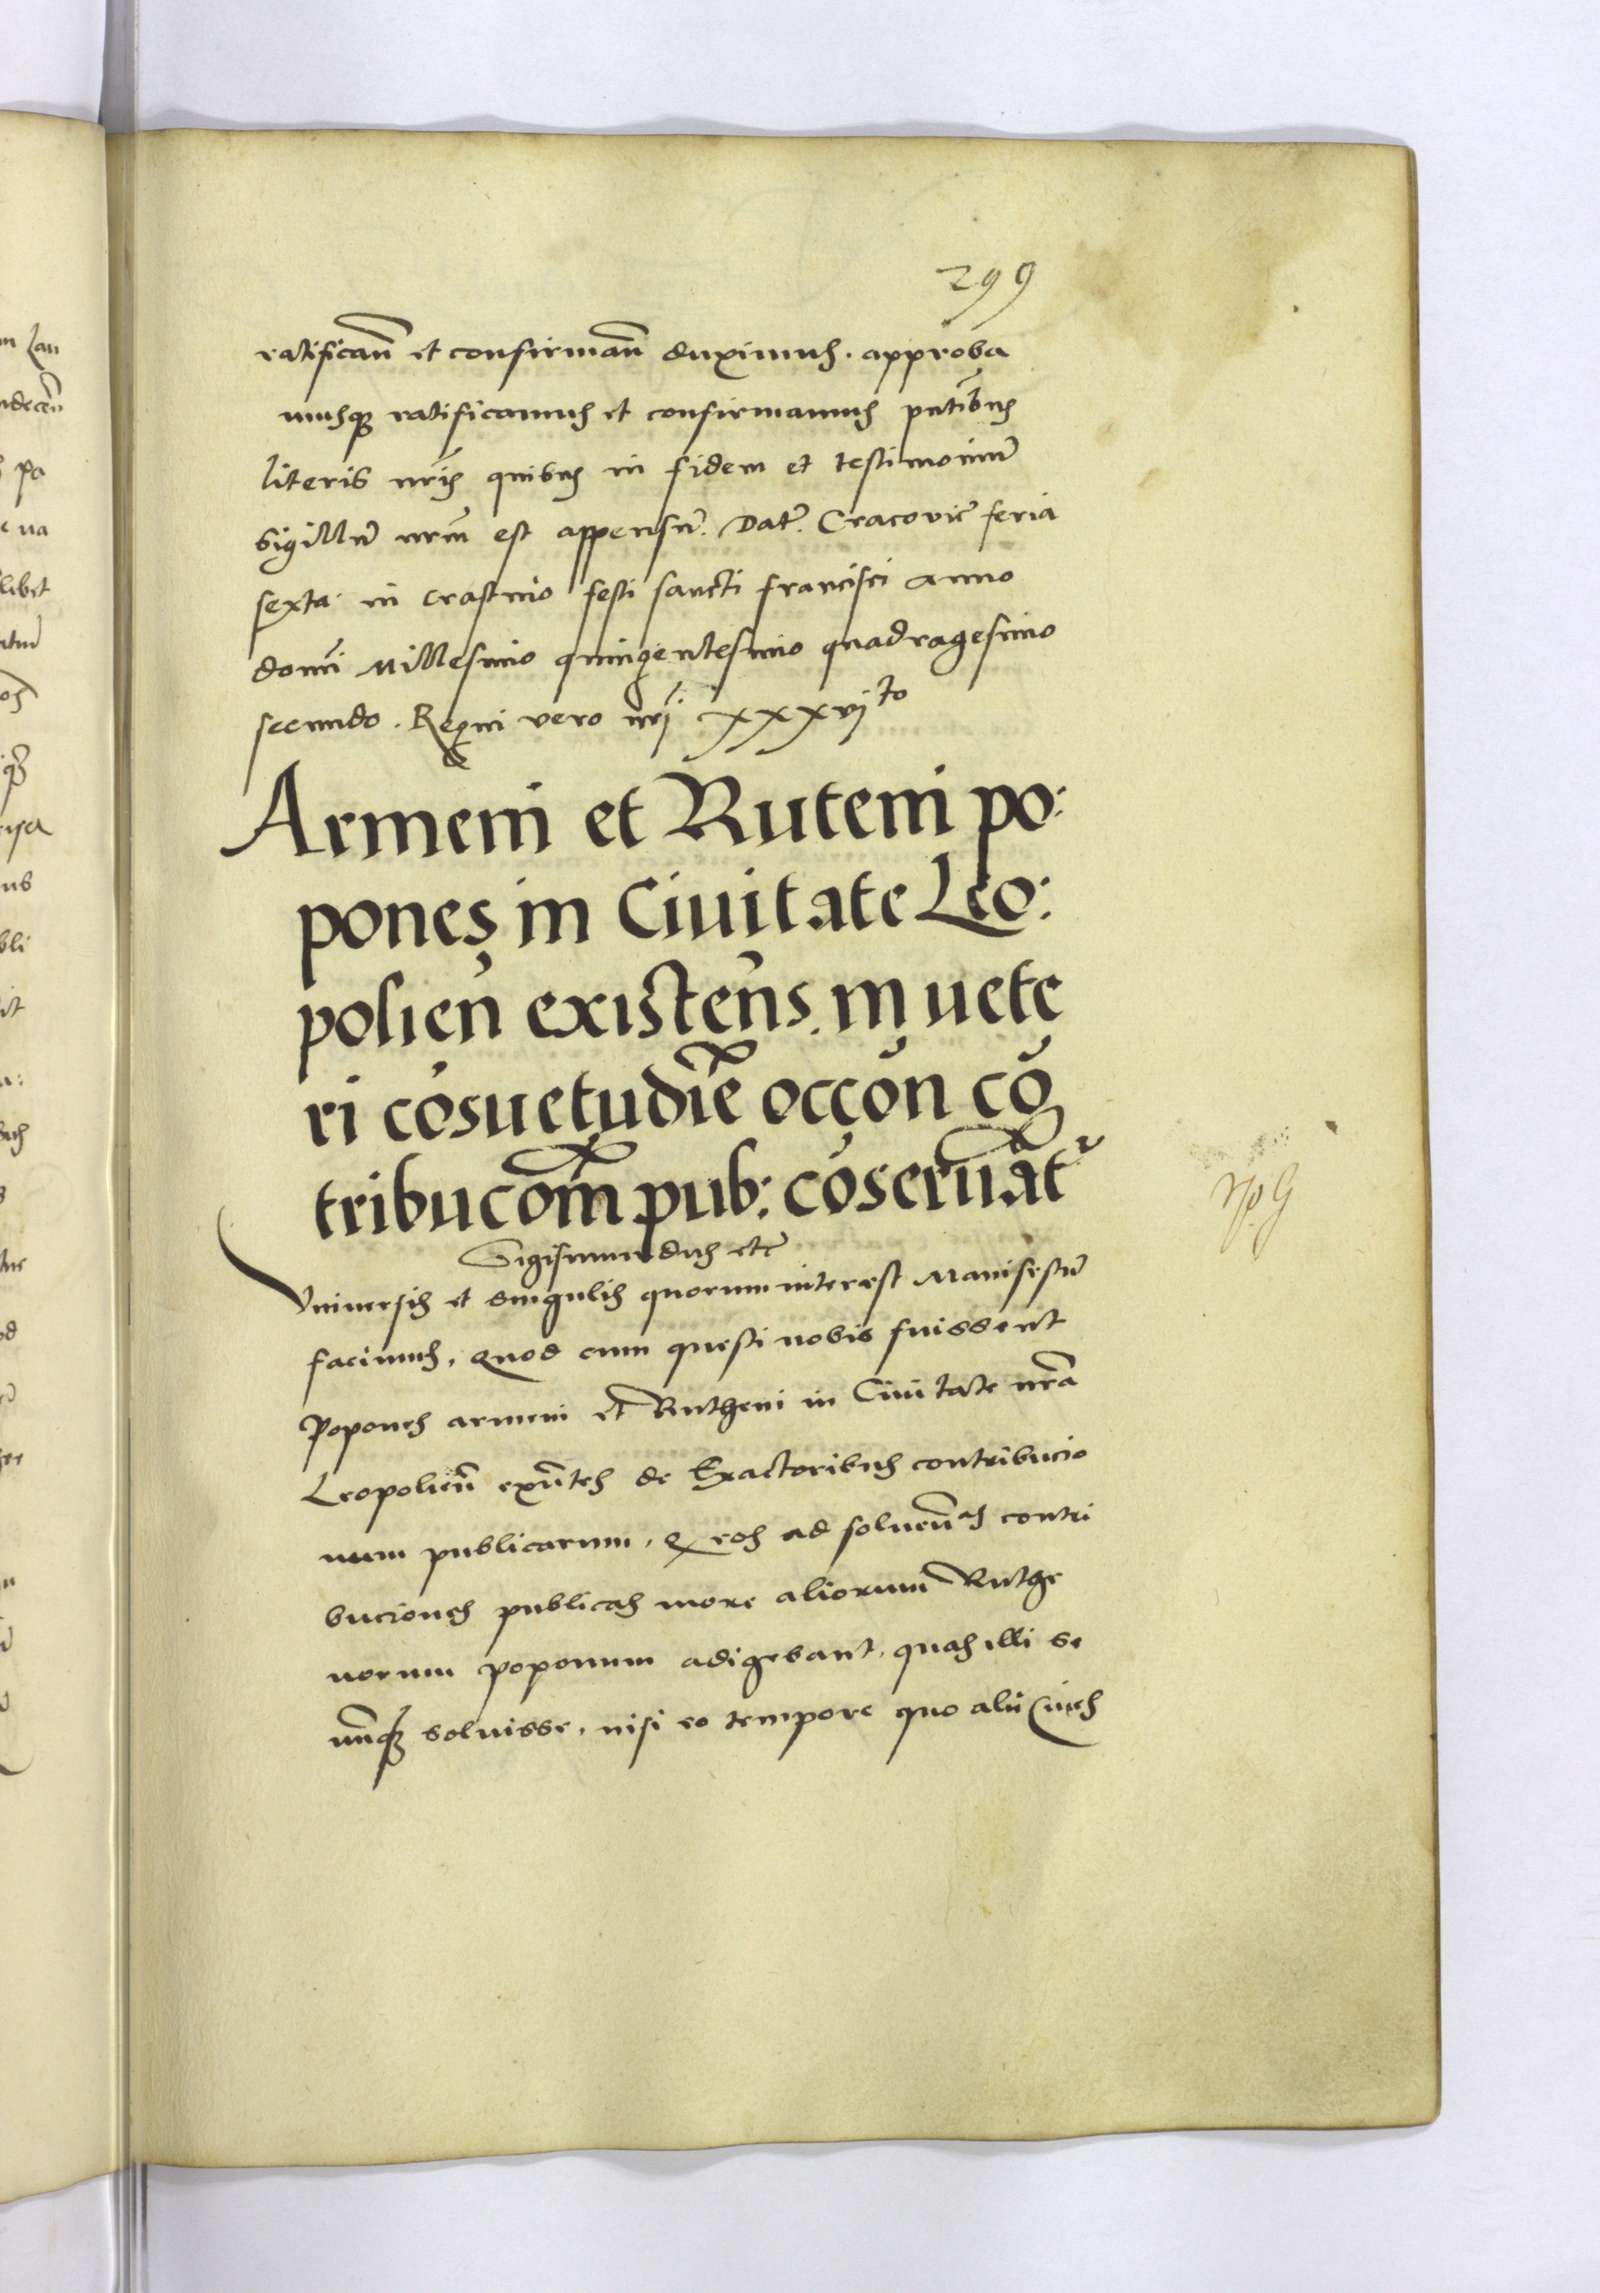 299
ratifican̄ et confirman̄ duximus. approba
musq̨ ratificamus et confirmamus pn̄tibus
literis nr̄is quibus in fidem et testimoniū
sigillū nrm̄ est appensū. Dat̄. Cracovie feria
sexta in crastino festi sancti francisci anno
domi Millesimo quingentesimo quadragesimo
secundo. Regni vero nrī xxxvjto
Armeni et Ruteni po:
pones in Ciuitate Leo:
polien̄ existens. in uete
ri cōsuetudīe occōn cō
tribucom̄ pub: cōseruāt
Sigismundus etc̄
Vniuersis et singulis quorum interest Manifestū
facimus, Quod cum questi nobis fuissent
Popones armeni et Rutheni in Ciuitate nrā
Leopolien̄ exn̄tes de Exactoribus contribucio
num publicarum, q eos ad soluen̄as contri
buciones publicas more aliorum Ruthe
norum poponum adigebant, quas illi se
unq̄ soluisse, nisi eo tempore quo alii Ciues